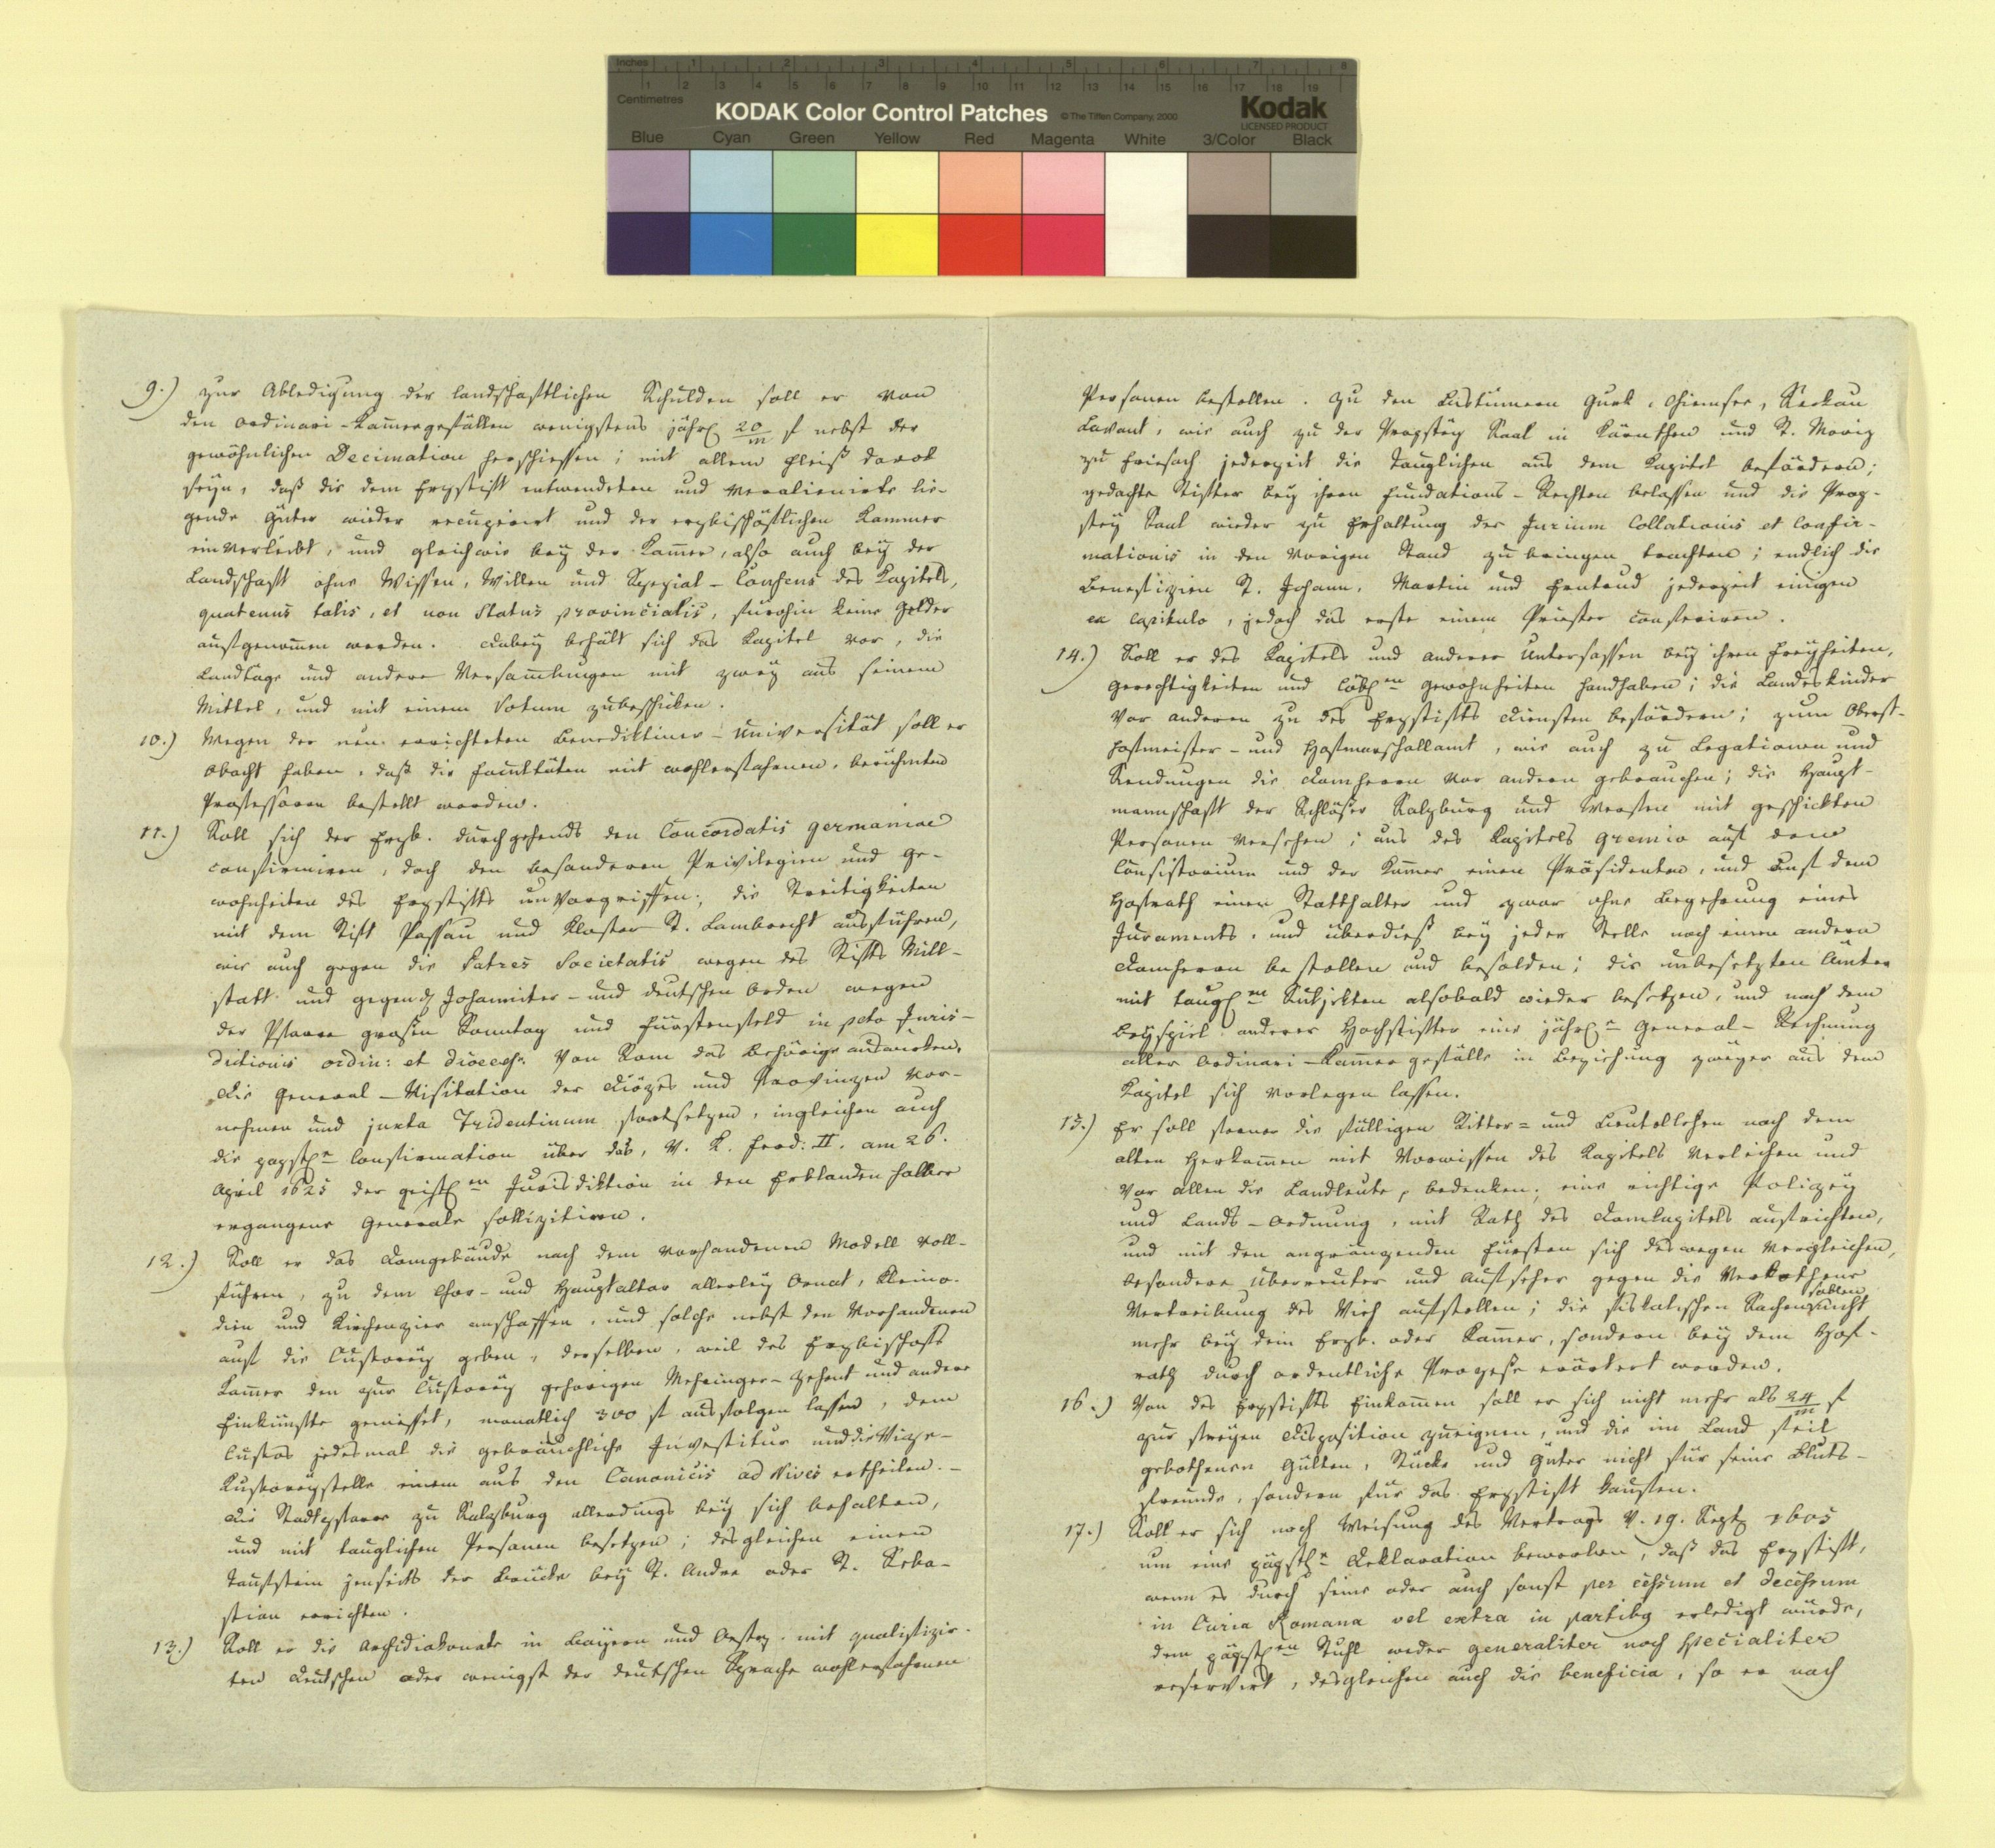 Inches 1 2 3 4 5 6 7 8
1 2 3 4 5 6 7 8 9 10 11 12 13 14 15 16 17 18 19
Centimetres
KODAK Color Control Patches © The Tiffen Company, 2000 Kodak
LICENSED PRODUCT
Blue Cyan Green Yellow Red Magenta White 3/Color Black
9.) zur Abledigung der landschaftlichen Schulden soll er von
den ordinari-Kam̅ergefällen wenigstens jährl 20/m f nebst der
gewöhnlichen Decimation herschiessen; mit allem Fleiß darob
seyn, daß die dem Erzstift entwendeten und veralienirte lie-
gende Güter wieder recuperirt und der erzbischöflichen Kammer
einverleibt, und gleichwie bey der Kam̅er, also auch bey der
Landschaft ohne Wissen, Willen und Spezial-Consens des Kapitels,
quatenus talis, et non Status provincialis, fürohin keine Gelder
aufgenom̅en werden. dabey behält sich das Kapitel vor, die
Landtage und andere Versam̅lungen mit zwey aus seinem
Mittel, und mit einem Votum zubeschicken.
10.) Wegen der neu errichteten Benediktiner-Universität soll er
obacht haben, daß die Facultäten mit wohlerfahrnen, berühmten
Professoren bestellt werden.
11.) Soll sich der Erzb. durchgehends den Concordatis germaniae
confirmiren, doch den besonderen Privilegien und Ge-
wohnheiten des Erzstifts unvorgriffen; die Streitigkeiten
mit dem Stift Passau und Kloster St. Lambrecht ausführen,
wie auch gegen die Patres Societatis wegen des Stifts Mill-
statt und gegen d. Johanniter- und deutschen Orden wegen
der Pfarre grosen Sonntag und Fürstenfeld in pcto Juris-
dictionis ordin: et dioeces. Von Rom das Behörige auswirken,
die General-Visitation der Diözes und Provinzen vor-
nehmen und juxta Tridentinum fortsetzen, ingleichen auch
die papstl. Confirmation über das, v. K. Ferd: II. am 26.
April 1625 der geistl.en Jurisdiktion in den Erblanden halber
ergangene Generale sollizitiren.
12.) Soll er das Domgebäude nach dem vorhandenen Modell voll-
führen, zu dem Chor- und Hauptaltar allerley Ornat, Kleino-
dien und Kirchenzier anschaffen, und solche nebst den Vorhandenen
auf die Custorey geben, derselben, weil des Erzbischofs
Kam̅er den zur Custorey gehörigen Mehringer-Zehent und andere
Einkünfte geniesset, monatlich 300 f ausfolgen lassen, dem
Custos jedesmal die gebräuchliche Investitur und die Vize-
Kustoreystelle einem aus den Canonicis ad Nives ertheilen.-
die Stadtpfarre zu Salzburg allerdings bey sich behalten,
und mit tauglichen Personen besetzen; desgleichen einen
Taufstein jenseits der Brücke bey St. Andre oder St. Seba-
stian errichten.
13.) Soll er die Archidiakonate in Bayern und Oestr. mit qualifizir-
ten deutschen oder wenigst der deutschen Sprache wohlerfahrnen
Personen bestellen. Zu den Bistümern Gurk, Chiemsee, Seckau
Lavant, wie auch zu der Propstey Saal in Kärnthen und St. Moriz
zu Friesach jederzeit die Tauglichen aus dem Kapitel befördern;
gedachte Stifter bey ihren Fundations-Rechten belassen und die Prop-
stey Saal wieder zu Erhaltung der Jurium Collationis et Confir-
mationis in den vorigen Stand zu bringen trachten; endlich die
Benefizien St. Johann, Martin und Erntrud jederzeit einigen
ex Capitulo, jedoch das erste einem Priester conferiren.
14.) Soll er des Kapitels und anderer Untersassen bey ihren Freyheiten,
Gerechtigkeiten und löbl.en Gewohnheiten handhaben; die Landeskinder
vor anderen zu des Erzstifts diensten befördern; zum Oberst-
hofmeister- und Hofmarschallamt, wie auch zu Legationen und
Sendungen die Domherrn vor andern gebrauchen; die Haupt-
mannschaft der Schlößer Salzburg und Werfen mit geschickten
Personen versehen; aus des Kapitels Gremio auf dem
Consistorium und der Kam̅er einen Präsidenten, und auf dem
Hofrath einen Statthalter und zwar ohne Begehrung eines
Juraments, und überdieß bey jeder Stelle noch einen andern
Domherrn bestellen und besolden; die unbesetzten Ämter
mit taugl.en Subjekten alsobald wieder besetzen, und nach dem
Beyspiel anderer Hochstifter eine jährl.e General-Rechnung
aller Ordinari-Kam̅ergefälle in Beziehung zweyer aus dem
Kapitel sich vorlegen lassen.
15.) Er soll ferner die fälligen Ritter- und Beutellehen nach dem
alten Herkom̅en mit Vorwissen des Kapitels verleihen und
vor allen die Landleute bedenken; eine richtige Polizey
und Lands-Ordnung, mit Rath des Domkapitels aufrichten,
und mit den angränzenden Fürsten sich deswegen vergleichen,
besondere Überreuter und Aufseher gegen die Verbothene
Vertreibung des Vieh aufstellen; die fiskalischen Sachen sollen nicht
mehr bey dem Erzb. oder Kam̅er, sondern bey dem Hof-
rath durch ordentliche Prozeße erörtert werden.
16.) Von des Erzstifts Einkom̅en soll er sich nicht mehr als 24/m f
zur freyen disposition zueignen, und die im Land feil
gebothenen Gülten, Stücke und Güter nicht für seine Bluts-
freunde, sondern für das Erzstift kaufen.
17.) Soll er sich nach Weisung des Vertrags v. 19. Sept 1605
um eine päpstl.e Deklaration bewerben, daß das Erzstift,
wenn es durch seine oder auch sonst per cessum et decessum
in Curia Romana vel extra in partibus erledigt würde,
dem päpstl.en Stuhl weder generaliter noch specialiter
reservirt, desgleichen auch die beneficia, so er nach